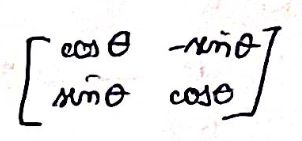 [cos θ -sin θ
sin θ cos θ]